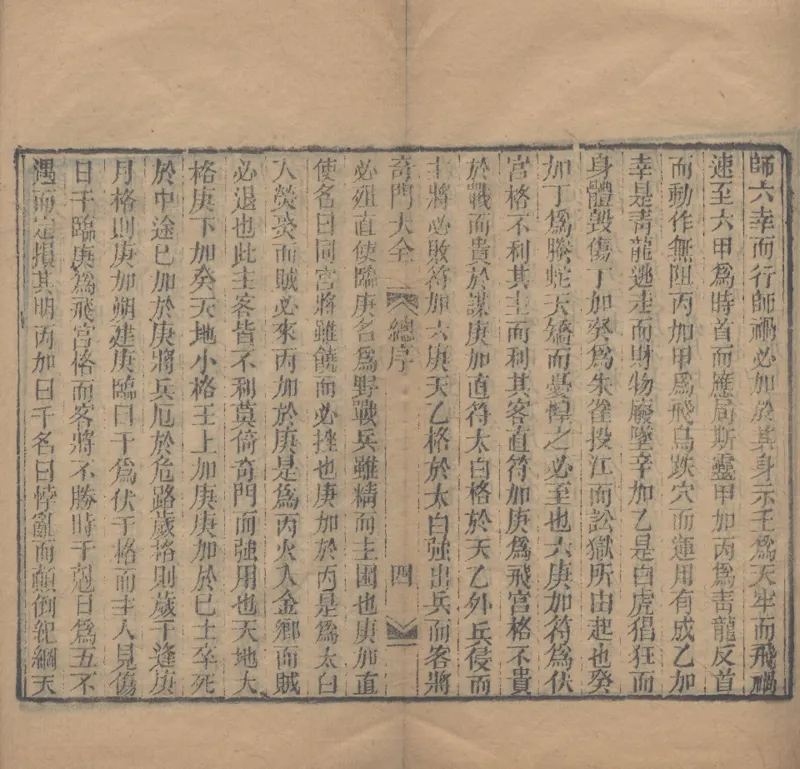 師六幸而行師禍必加於其身示壬爲天牢而飛禍
速至六甲爲時首而應局斯靈甲加丙爲靑龍反首
而動作無阻丙加甲爲飛鳥跌穴而運用有成乙加
幸是靑龍逃走而財物廢墜辛加乙是白虎猖狂而
身體毀傷丁加癸爲朱雀投江而訟獄所由起也癸
加丁爲騰蛇夭矯而憂惶之必至也六庚加符爲伏
宮格不利其主而利其客直符加庚爲飛宮格不貴
於戰而貴於謀庚加直符太白格於天乙外兵侵而
主將必敗符加六庚天乙格於太白強出兵而客將
奇門大全
總序
四
必殂直使臨庚名爲野戰兵雖精而主困也庚加直
使名曰同宮將雖饒而必挫也庚加於丙是爲太白
入熒癸而賊必來丙加於庚是爲丙火入金鄉而賊
必退也此主客皆不利莫倚奇門而強用也天地大
格庚下加癸天地小格壬上加庚庚加於巳士卒死
於中途巳加於庚將兵厄於危路歲格則歲干逢庚
月格則庚加朔建庚臨日干爲伏干格而主人見傷
日干臨庚爲飛宮格而客將不勝時干尅日爲五不
遇而定損其明丙加日干名曰悖亂而顛倒紀綱天